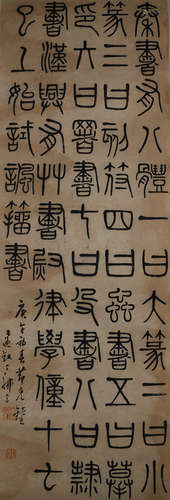 秦書有八體一曰大篆二曰小
篆三曰刻符四曰蟲書五曰摹
印六曰署書七曰殳書八曰隸
書漢興有艸書尉律學僮十七
已上始試諷籀書
庚午